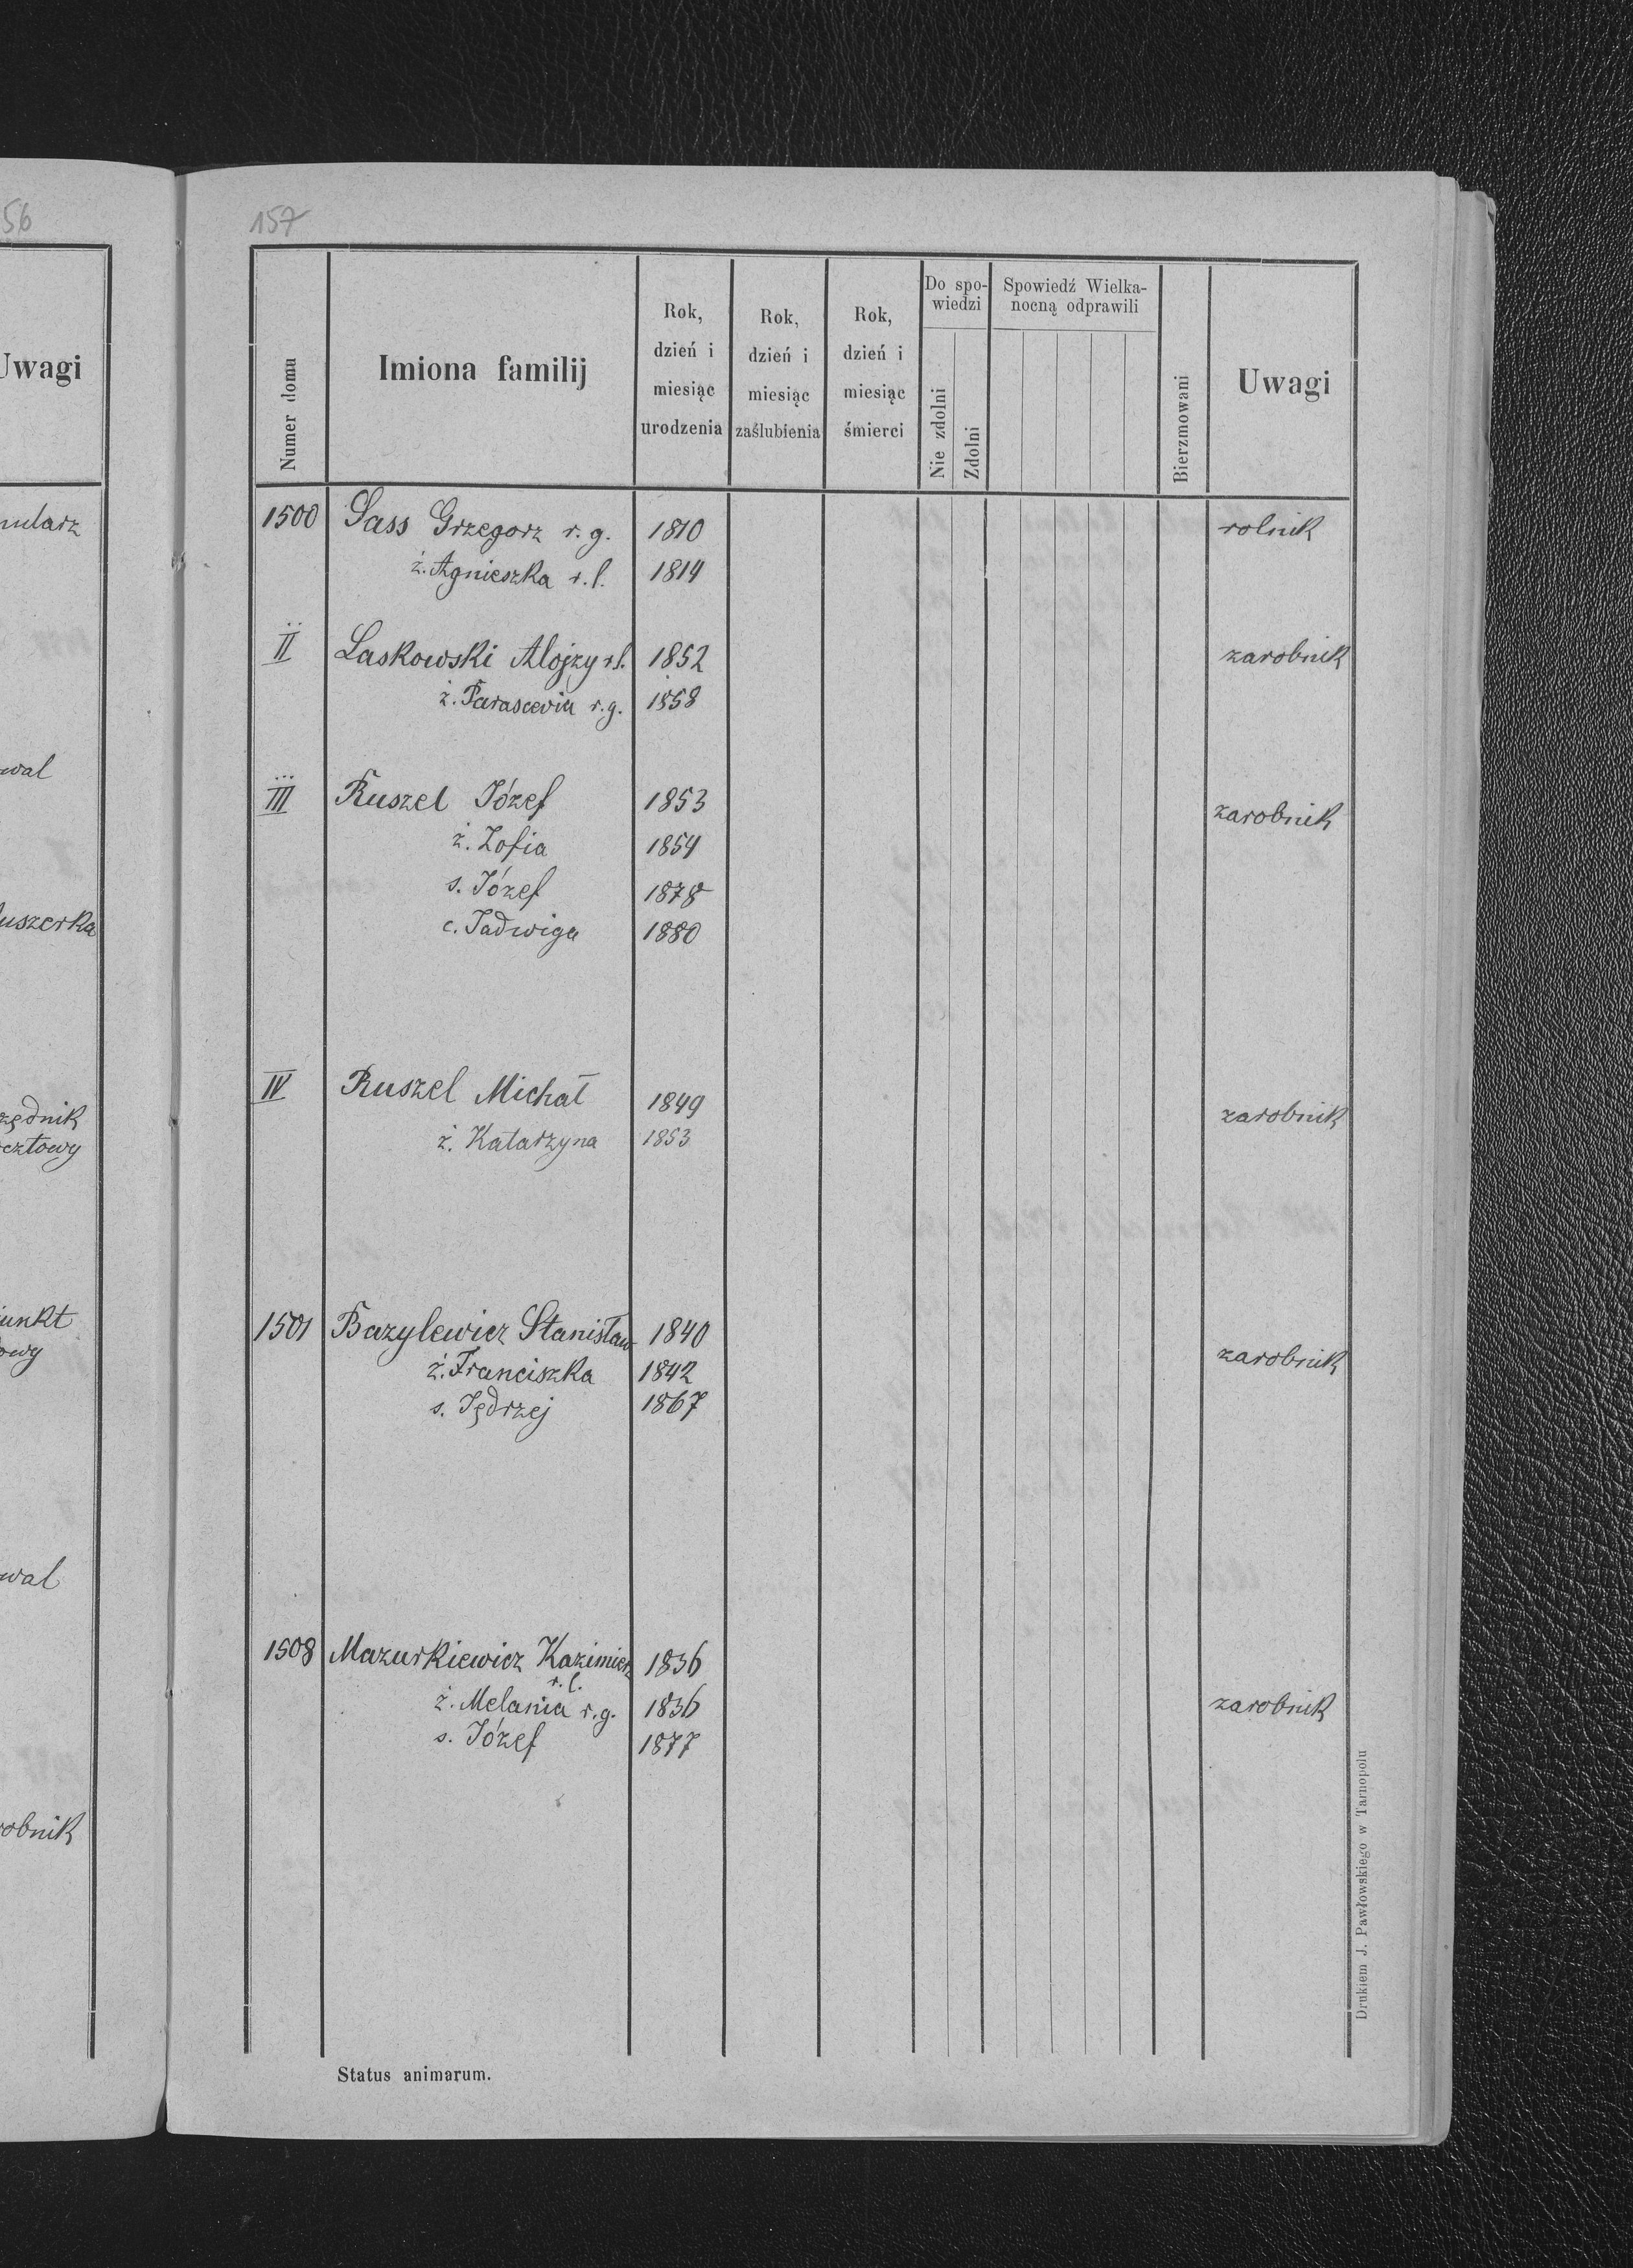 56
Uwagi
wal
uszerka
cztowy
wal
157
Numer domu
Imiona familij
Rok, dzień i miesiąc urodzenia
Rok, dzień i miesiąc zaślubienia
Rok, dzień i miesiąc śmierci
Do spowiedzi
Nie zdolni
Zdolni
Spowiedź Wielkanocną odprawili
Bierzmowani
Uwagi
1500 Sass Grzegorz r. g. 1810 rolnik
ż. Agnieszka r. l. 1814
II Laskowski Alojzy r l. 1852 zarobnik
ż. Parascevia r. g. 1858
III Ruszel Józef 1853 zarobnik
ż. Zofia 1854
s. Józef 1878
c. Jadwiga 1880
IV Ruszel Michał 1849 zarobnik
ż. Katarzyna 1853
1501 Bazylewicz Stanisław 1840 zarobnik
ż. Franciszka 1842
s. Jędrzej 1867
1508 Mazurkiewicz Kazimierz 1836
r. l.
ż. Melania r. g. 1836 zarobnik
s. Józef 1877
Status animarum.
Drukiem J. Pawłowskiego w Tarnopolu